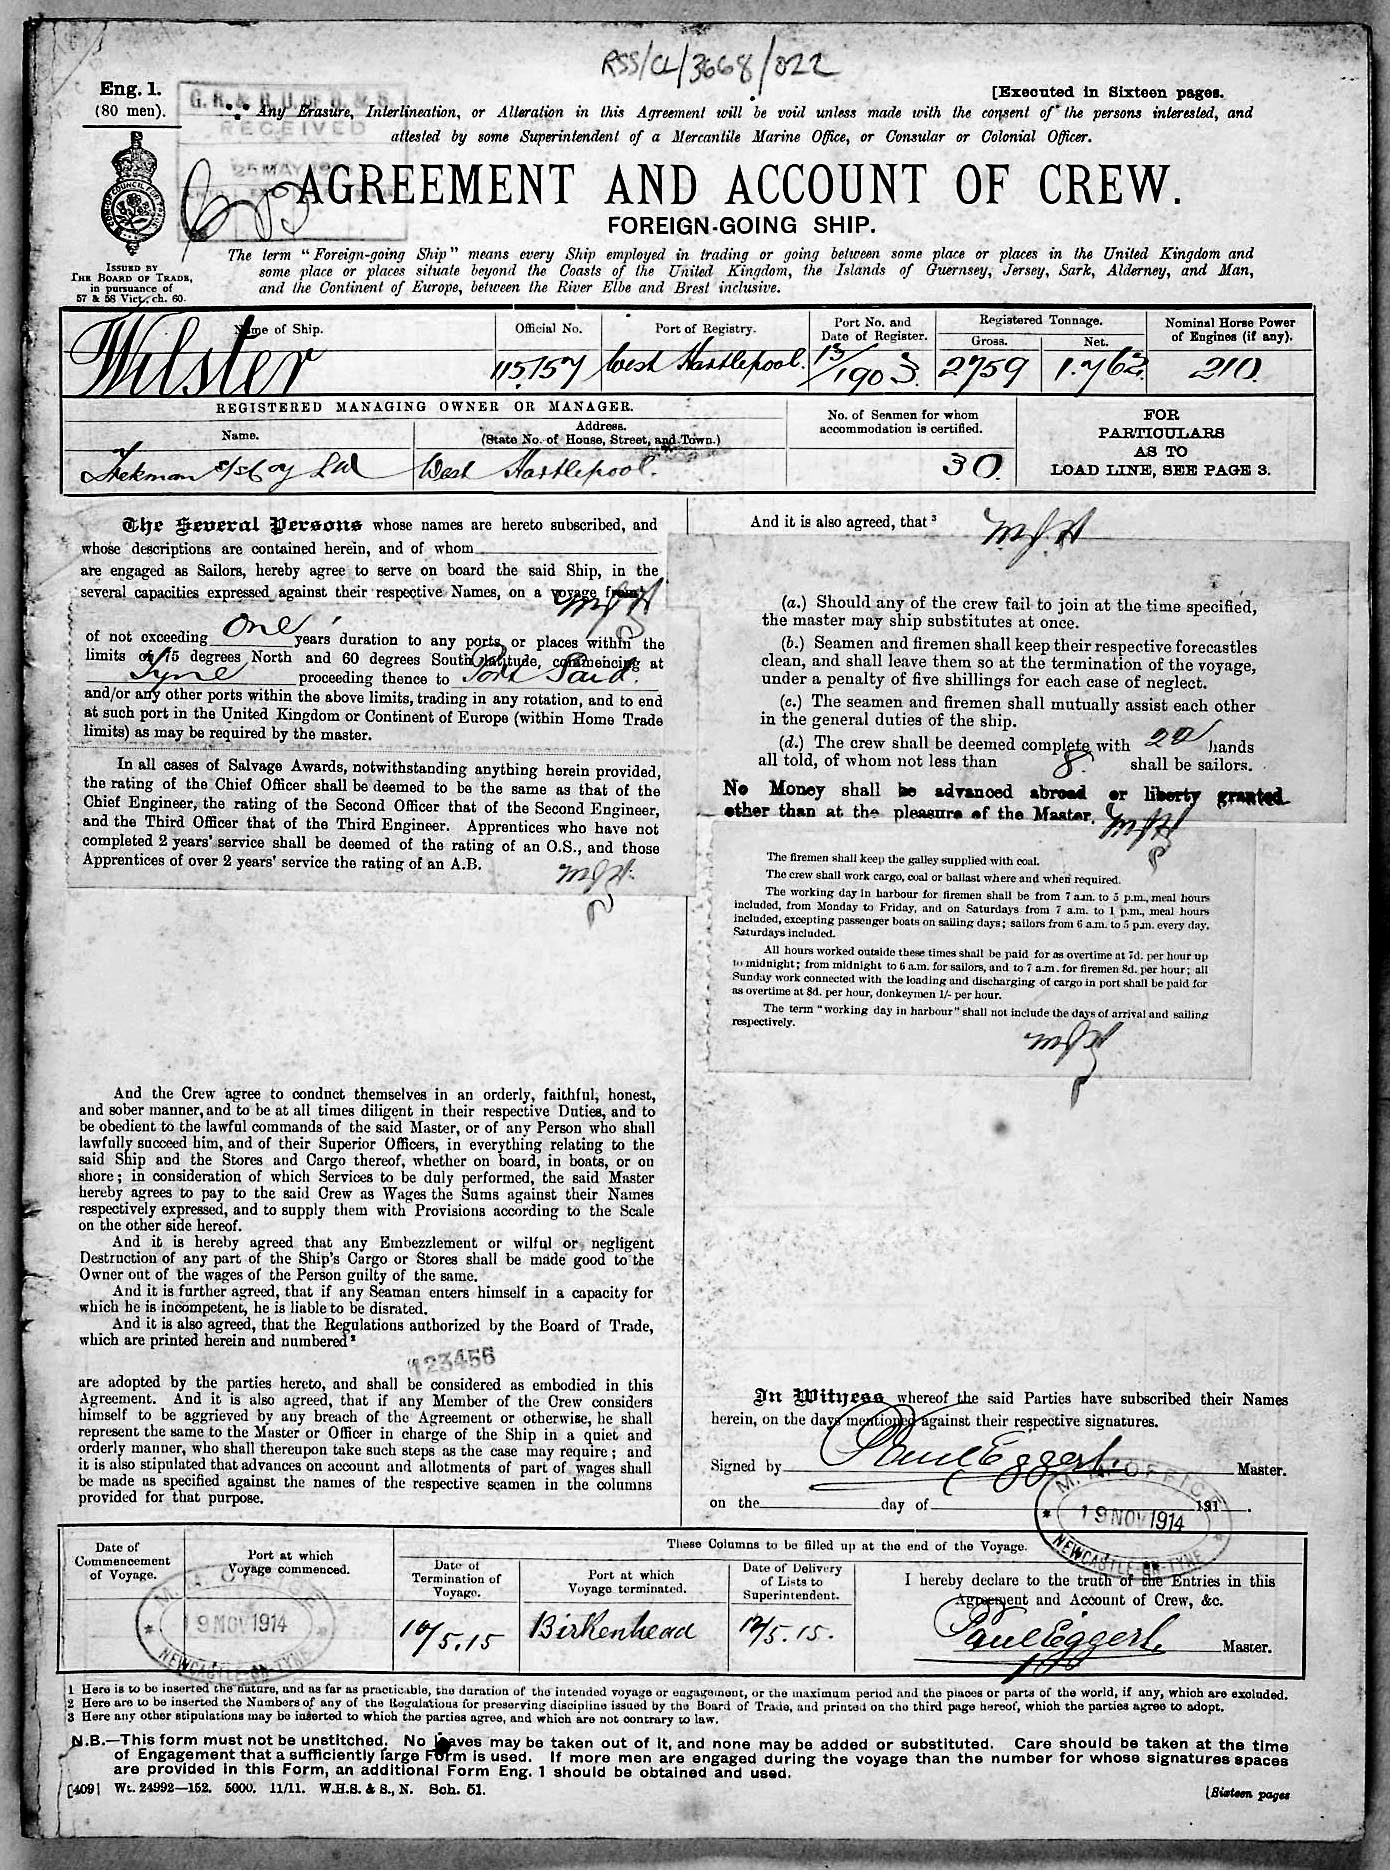 RSS/CL/3668/022
Eng. 1.
(80 men).
RECEIVED
25 MAY 19
[Executed in Sixteen pages.
Any Erasure, Interlineation, or Alteration in this Agreement will be void unless made with the consent of the persons interested, and
attested by some Superintendent of a Mercantile Marine Office, or Consular or Colonial Officer.
AGREEMENT AND ACCOUNT OF CREW.
FOREIGN-GOING SHIP.
The term "Foreign-going Ship" means every Ship employed in trading or going between some place or places in the United Kingdom and
some place or places situate beyond the Coasts of the United Kingdom, the Islands of Guernsey, Jersey, Sark, Alderney, and Man,
and the Continent of Europe, between the River Elbe and Brest inclusive.
ISSUED BY
THE BOARD OF TRADE,
in pursuance of
57 & 58 Vict., ch. 60.
Name of Ship.
Official No.
Port of Registry.
Port No. and
Date of Register.
Registered Tonnage.
Gross.
Net.
Nominal Horse Power
of Engines (if any).
Wilster
115,157
West Hartlepool.
13/1903
2759
1,762
210.
REGISTERED MANAGING OWNER OR MANAGER.
Name.
Address.
(State No. of House, Street, and Town.)
No. of Seamen for whom
accommodation is certified.
FOR
PARTICULARS
AS TO
LOAD LINE, SEE PAGE 3.
S/S Coy Ltd
West Hartlepool.
30.
The Several Persons whose names are hereto subscribed, and
whose descriptions are contained herein, and of whom
are engaged as Sailors, hereby agree to serve on board the said Ship, in the
several capacities expressed against their respective Names, on a voyage from
of not exceeding One years' duration to any ports or places within the
limits of 75 degrees North and 60 degrees South latitude, commencing at
Tyne proceeding thence to Port Said.
and/or any other ports within the above limits, trading in any rotation, and to end
at such port in the United Kingdom or Continent of Europe (within Home Trade
limits) as may be required by the master.
In all cases of Salvage Awards, notwithstanding anything herein provided,
the rating of the Chief Officer shall be deemed to be the same as that of the
Chief Engineer, the rating of the Second Officer that of the Second Engineer,
and the Third Officer that of the Third Engineer. Apprentices who have not
completed 2 years' service shall be deemed of the rating of an O.S., and those
Apprentices of over 2 years' service the rating of an A.B.
And the Crew agree to conduct themselves in an orderly, faithful, honest,
and sober manner, and to be at all times diligent in their respective Duties, and to
be obedient to the lawful commands of the said Master, or of any Person who shall
lawfully succeed him, and of their Superior Officers, in everything relating to the
said Ship and the Stores and Cargo thereof, whether on board, in boats, or on
shore; in consideration of which Services to be duly performed, the said Master
hereby agrees to pay to the said Crew as Wages the Sums against their Names
respectively expressed, and to supply them with Provisions according to the Scale
on the other side hereof.
And it is hereby agreed that any Embezzlement or wilful or negligent
Destruction of any part of the Ship's Cargo or Stores shall be made good to the
Owner out of the wages of the Person guilty of the same.
And it is further agreed, that if any Seaman enters himself in a capacity for
which he is incompetent, he is liable to be disrated.
And it is also agreed, that the Regulations authorized by the Board of Trade,
which are printed herein and numbered²
123456
are adopted by the parties hereto, and shall be considered as embodied in this
Agreement. And it is also agreed, that if any Member of the Crew considers
himself to be aggrieved by any breach of the Agreement or otherwise, he shall
represent the same to the Master or Officer in charge of the Ship in a quiet and
orderly manner, who shall thereupon take such steps as the case may require; and
it is also stipulated that advances on account and allotments of part of wages shall
be made as specified against the names of the respective seamen in the columns
provided for that purpose.
And it is also agreed, that³
(a.) Should any of the crew fail to join at the time specified,
the master may ship substitutes at once.
(b.) Seamen and firemen shall keep their respective forecastles
clean, and shall leave them so at the termination of the voyage,
under a penalty of five shillings for each case of neglect.
(c.) The seamen and firemen shall mutually assist each other
in the general duties of the ship.
(d.) The crew shall be deemed complete with 20 hands
all told, of whom not less than 8. shall be sailors.
No Money shall be advanced abroad or liberty granted
other than at the pleasure of the Master.
The firemen shall keep the galley supplied with coal.
The crew shall work cargo, coal or ballast where and when required.
The working day in harbour for firemen shall be from 7 a.m. to 5 p.m., meal hours
included, from Monday to Friday, and on Saturdays from 7 a.m. to 1 p.m., meal hours
included, excepting passenger boats on sailing days; sailors from 6 a.m. to 5 p.m. every day,
Saturdays included.
All hours worked outside these times shall be paid for as overtime at 7d. per hour up
to midnight; from midnight to 6 a.m. for sailors, and to 7 a.m. for firemen 8d. per hour; all
Sunday work connected with the loading and discharging of cargo in port shall be paid for
as overtime at 8d. per hour, donkeymen 1/- per hour.
The term "working day in harbour" shall not include the days of arrival and sailing
respectively.
In Witness whereof the said Parties have subscribed their Names
herein, on the days mentioned against their respective signatures.
Signed by Paul Eggert. Master.
on the day of 191 .
M. M. OFFICE
19 NOV 1914
NEWCASTLE-ON-TYNE
Date of
Commencement
of Voyage.
Port at which
Voyage commenced.
These Columns to be filled up at the end of the Voyage.
Date of
Termination of
Voyage.
Port at which
Voyage terminated.
Date of Delivery
of Lists to
Superintendent.
I hereby declare to the truth of the Entries in this
Agreement and Account of Crew, &c.
19 NOV 1914
NEWCASTLE-ON-TYNE
Birkenhead
12/5.15.
Paul Eggert. Master.
1 Here is to be inserted the nature, and as far as practicable, the duration of the intended voyage or engagement, or the maximum period and the places or parts of the world, if any, which are excluded.
2 Here are to be inserted the Numbers of any of the Regulations for preserving discipline issued by the Board of Trade, and printed on the third page hereof, which the parties agree to adopt.
3 Here any other stipulations may be inserted to which the parties agree, and which are not contrary to law.
N.B.—This form must not be unstitched. No leaves may be taken out of it, and none may be added or substituted. Care should be taken at the time
of Engagement that a sufficiently large Form is used. If more men are engaged during the voyage than the number for whose signatures spaces
are provided in this Form, an additional Form Eng. 1 should be obtained and used.
[409] Wt. 24992—152. 5000. 11/11. W.H.S. & S., N. Sch. 51.
[Sixteen pages